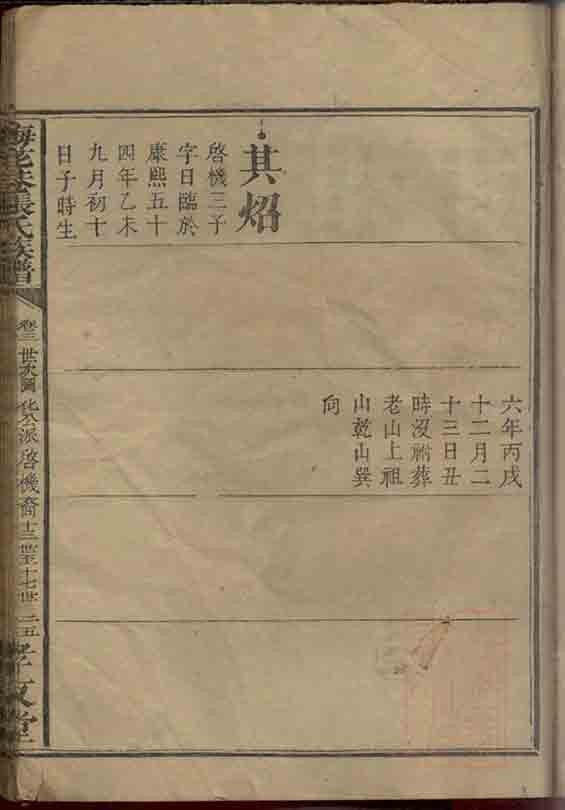 其炤
啓機三子
字日臨於
康熙五十
四年乙未
九月初十
日子時生
六年丙戌
十二月二
十三日丑
時沒祔葬
老山上祖
山乾山巽
向
張氏族譜
卷三 世次圖 化公派啓機裔十三世至十七世 二五